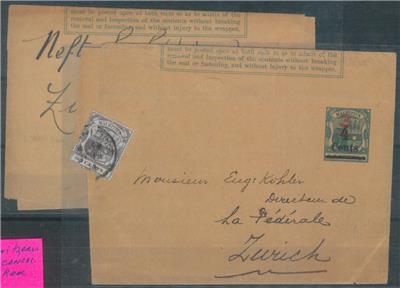 must be posted open at both ends so as to admit of the
removal and inspection of the contents without breaking
the seal or fastening, and without injury to the wrapper.
Neft
Zu
must be posted open at both ends so as to admit of the
removal and inspection of the contents without breaking
the seal or fastening, and without injury to the wrapper.
MAURITIUS
4
Cents
Monsieur Eug: Kohler
Directeur de
La Fédérale
Zurich
CANCEL